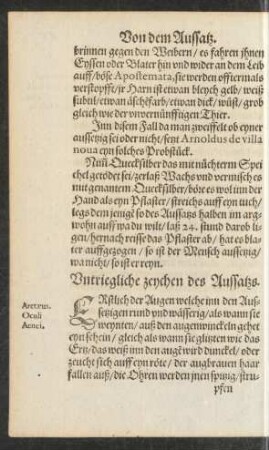 Von dem Aussatz.
brinnen gegen den Weibern / es fahren jhnen
Eyssen oder Blater hin vnd wider an dem Leib
auff / böse Apostemata, sie werden offtermals
verstopfft / jr Harn ist etwan bleych gelb / weiß
subtil / etwan äschefarb / etwan dick / wüst / grob
gleich wie der vnvernünfftigen Thier.
Inn disem Fall da man zweiffelt ob eyner
aussetzig sei oder nicht / setzt Arnoldus de villa
noua eyn solches Probstück.
Nim Quecksilber das mit nüchterm Spei
chel getödet sei / zerlaß Wachs vnd vermisch es
mit genantem Quecksilber / böre es wol inn der
Hand als eyn Pflaster / streichs auff eyn tuch /
legs dem jenigē so des Aussatzs halben im arg-
wohn auff wa du wilt / laß 24. stund darob li-
gen / hernach reisse das Pflaster ab / hat es bla-
ter auffgezogen / so ist der Mensch aussetzig /
wa nicht / so ist er reyn.
Vntriegliche zeychen des Aussatzs.
Arcturus.
Oculi
Aenei.
ERstlich der Augen welche inn den Auß-
setzigen rund vnd wässerig / als wann sie
weynten / auß den augenwinckeln gehet
eyn schein / gleich als wann sie glitzten wie das
Ertz / das weiß inn den augē wird dunckel / oder
zeucht sich auff eyn röte / der augbrauen haar
fallen auß / die Ohren werden jnen spitzig / stru-
pfen